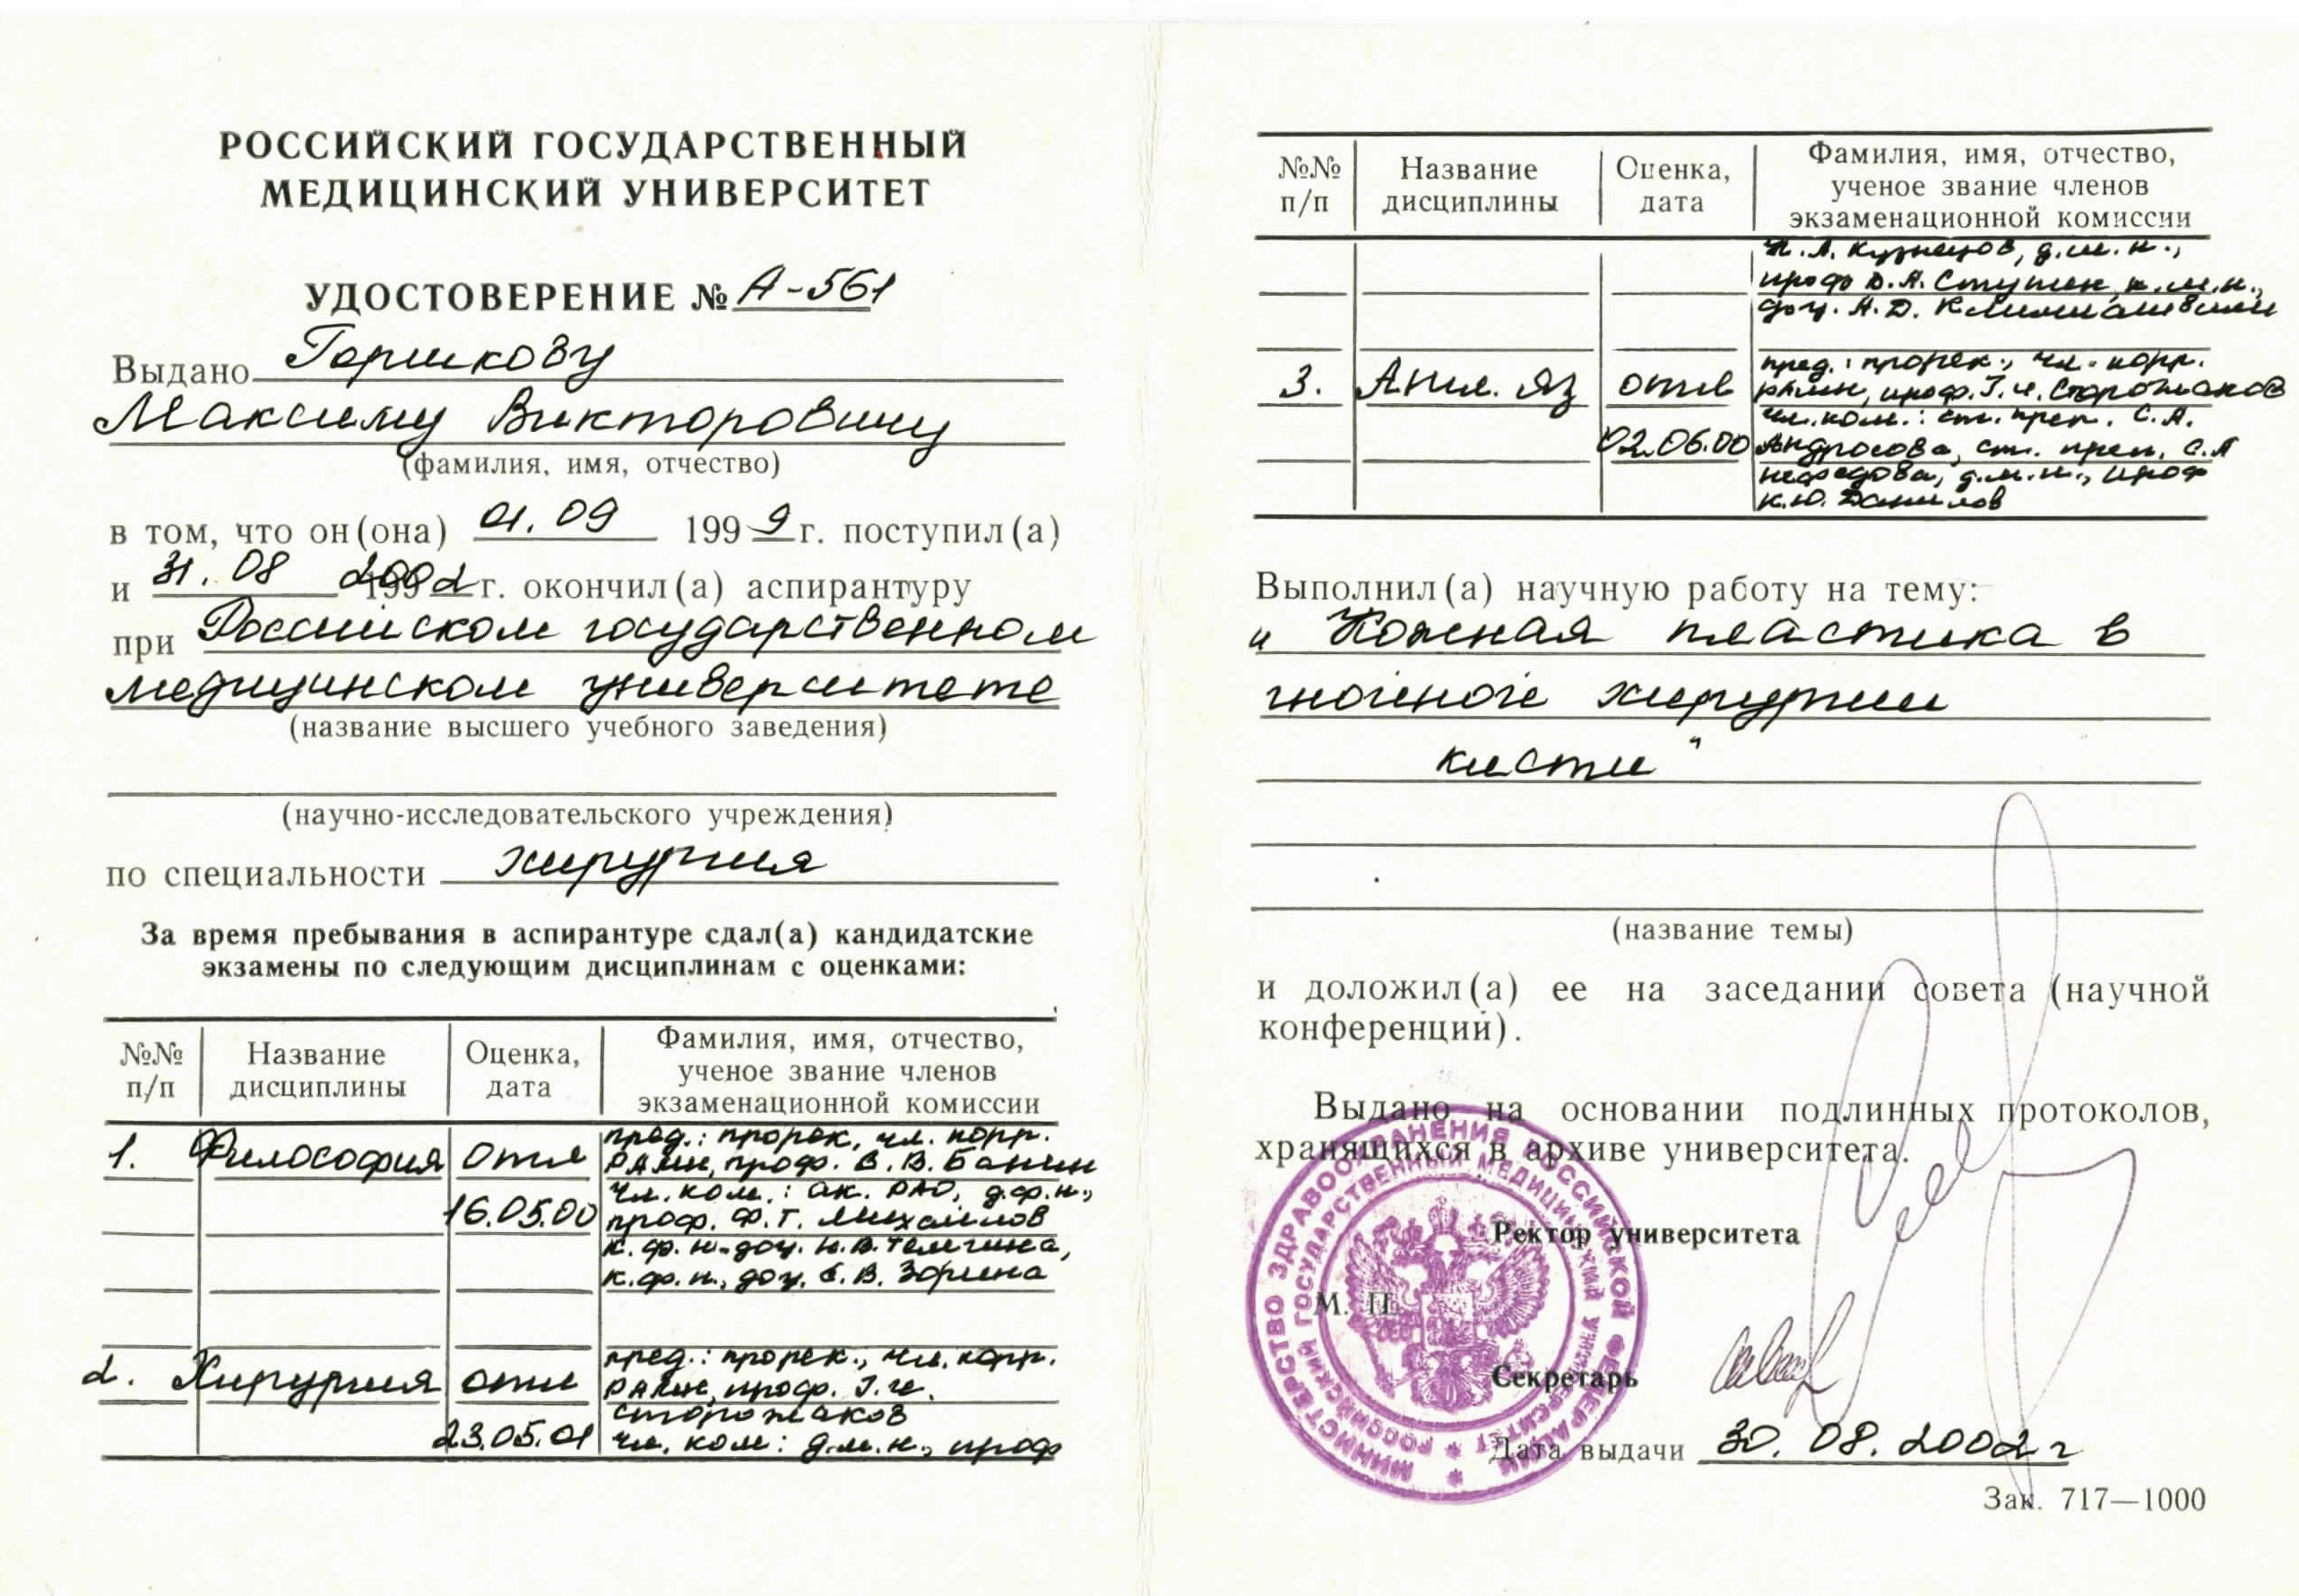 РОССИЙСКИЙ ГОСУДАРСТВЕННЫЙ
МЕДИЦИНСКИЙ УНИВЕРСИТЕТ
УДОСТОВЕРЕНИЕ № А-561
Выдано Горшкову
Максиму Викторовичу
(фамилия, имя, отчество)
в том, что он(она) 01.09 1999 г. поступил(а)
и 31.08 2002 г. окончил(а) аспирантуру
при Российском государственном
медицинском университете
(название высшего учебного заведения)
(научно-исследовательского учреждения)
по специальности хирургия
За время пребывания в аспирантуре сдал(а) кандидатские
экзамены по следующим дисциплинам с оценками:
№№ п/п Название дисциплины Оценка, дата Фамилия, имя, отчество, ученое звание членов экзаменационной комиссии
1. Философия отл пред.: прорек, чл. корр.
РАМН, проф. В.В. Банин
чл. ком.: ак. РАО, д.ф.н.,
16.05.00 проф. Ф.Т. Михайлов
к.ф.н. доц. Н.В. Телегина,
к.ф.н., доц. Е.В. Зорина
2. Хирургия отл пред.: прорек., чл. корр.
РАМН, проф. Г.И.
Сторожаков
23.05.01 чл. ком: д.м.н., проф
№№ п/п Название дисциплины Оценка, дата Фамилия, имя, отчество, ученое звание членов экзаменационной комиссии
Н.А. Кузнецов, д.м.н.,
проф Д.А. к.м.н.,
доц. А.Д. Климиашвили
3. Англ. яз отл пред.: прорек., чл. корр.
РАМН, проф. Г.И. Сторожаков
чл. ком.: ст. преп. С.А.
02.06.00 Андросова, ст. преп. С.А
Нефедова, д.м.н., проф
К.Ю. Данилов
Выполнил(а) научную работу на тему:
" Кожная пластика в
гнойной хирургии
кисти "
(название темы)
и доложил(а) ее на заседании совета (научной
конференции).
Выдано на основании подлинных протоколов,
хранящихся в архиве университета.
МИНИСТЕРСТВО ЗДРАВООХРАНЕНИЯ РОССИЙСКОЙ ФЕДЕРАЦИИ
РОССИЙСКИЙ ГОСУДАРСТВЕННЫЙ МЕДИЦИНСКИЙ УНИВЕРСИТЕТ
Ректор университета
М. П.
Секретарь
Дата выдачи 30.08.2002 г
Зак. 717—1000